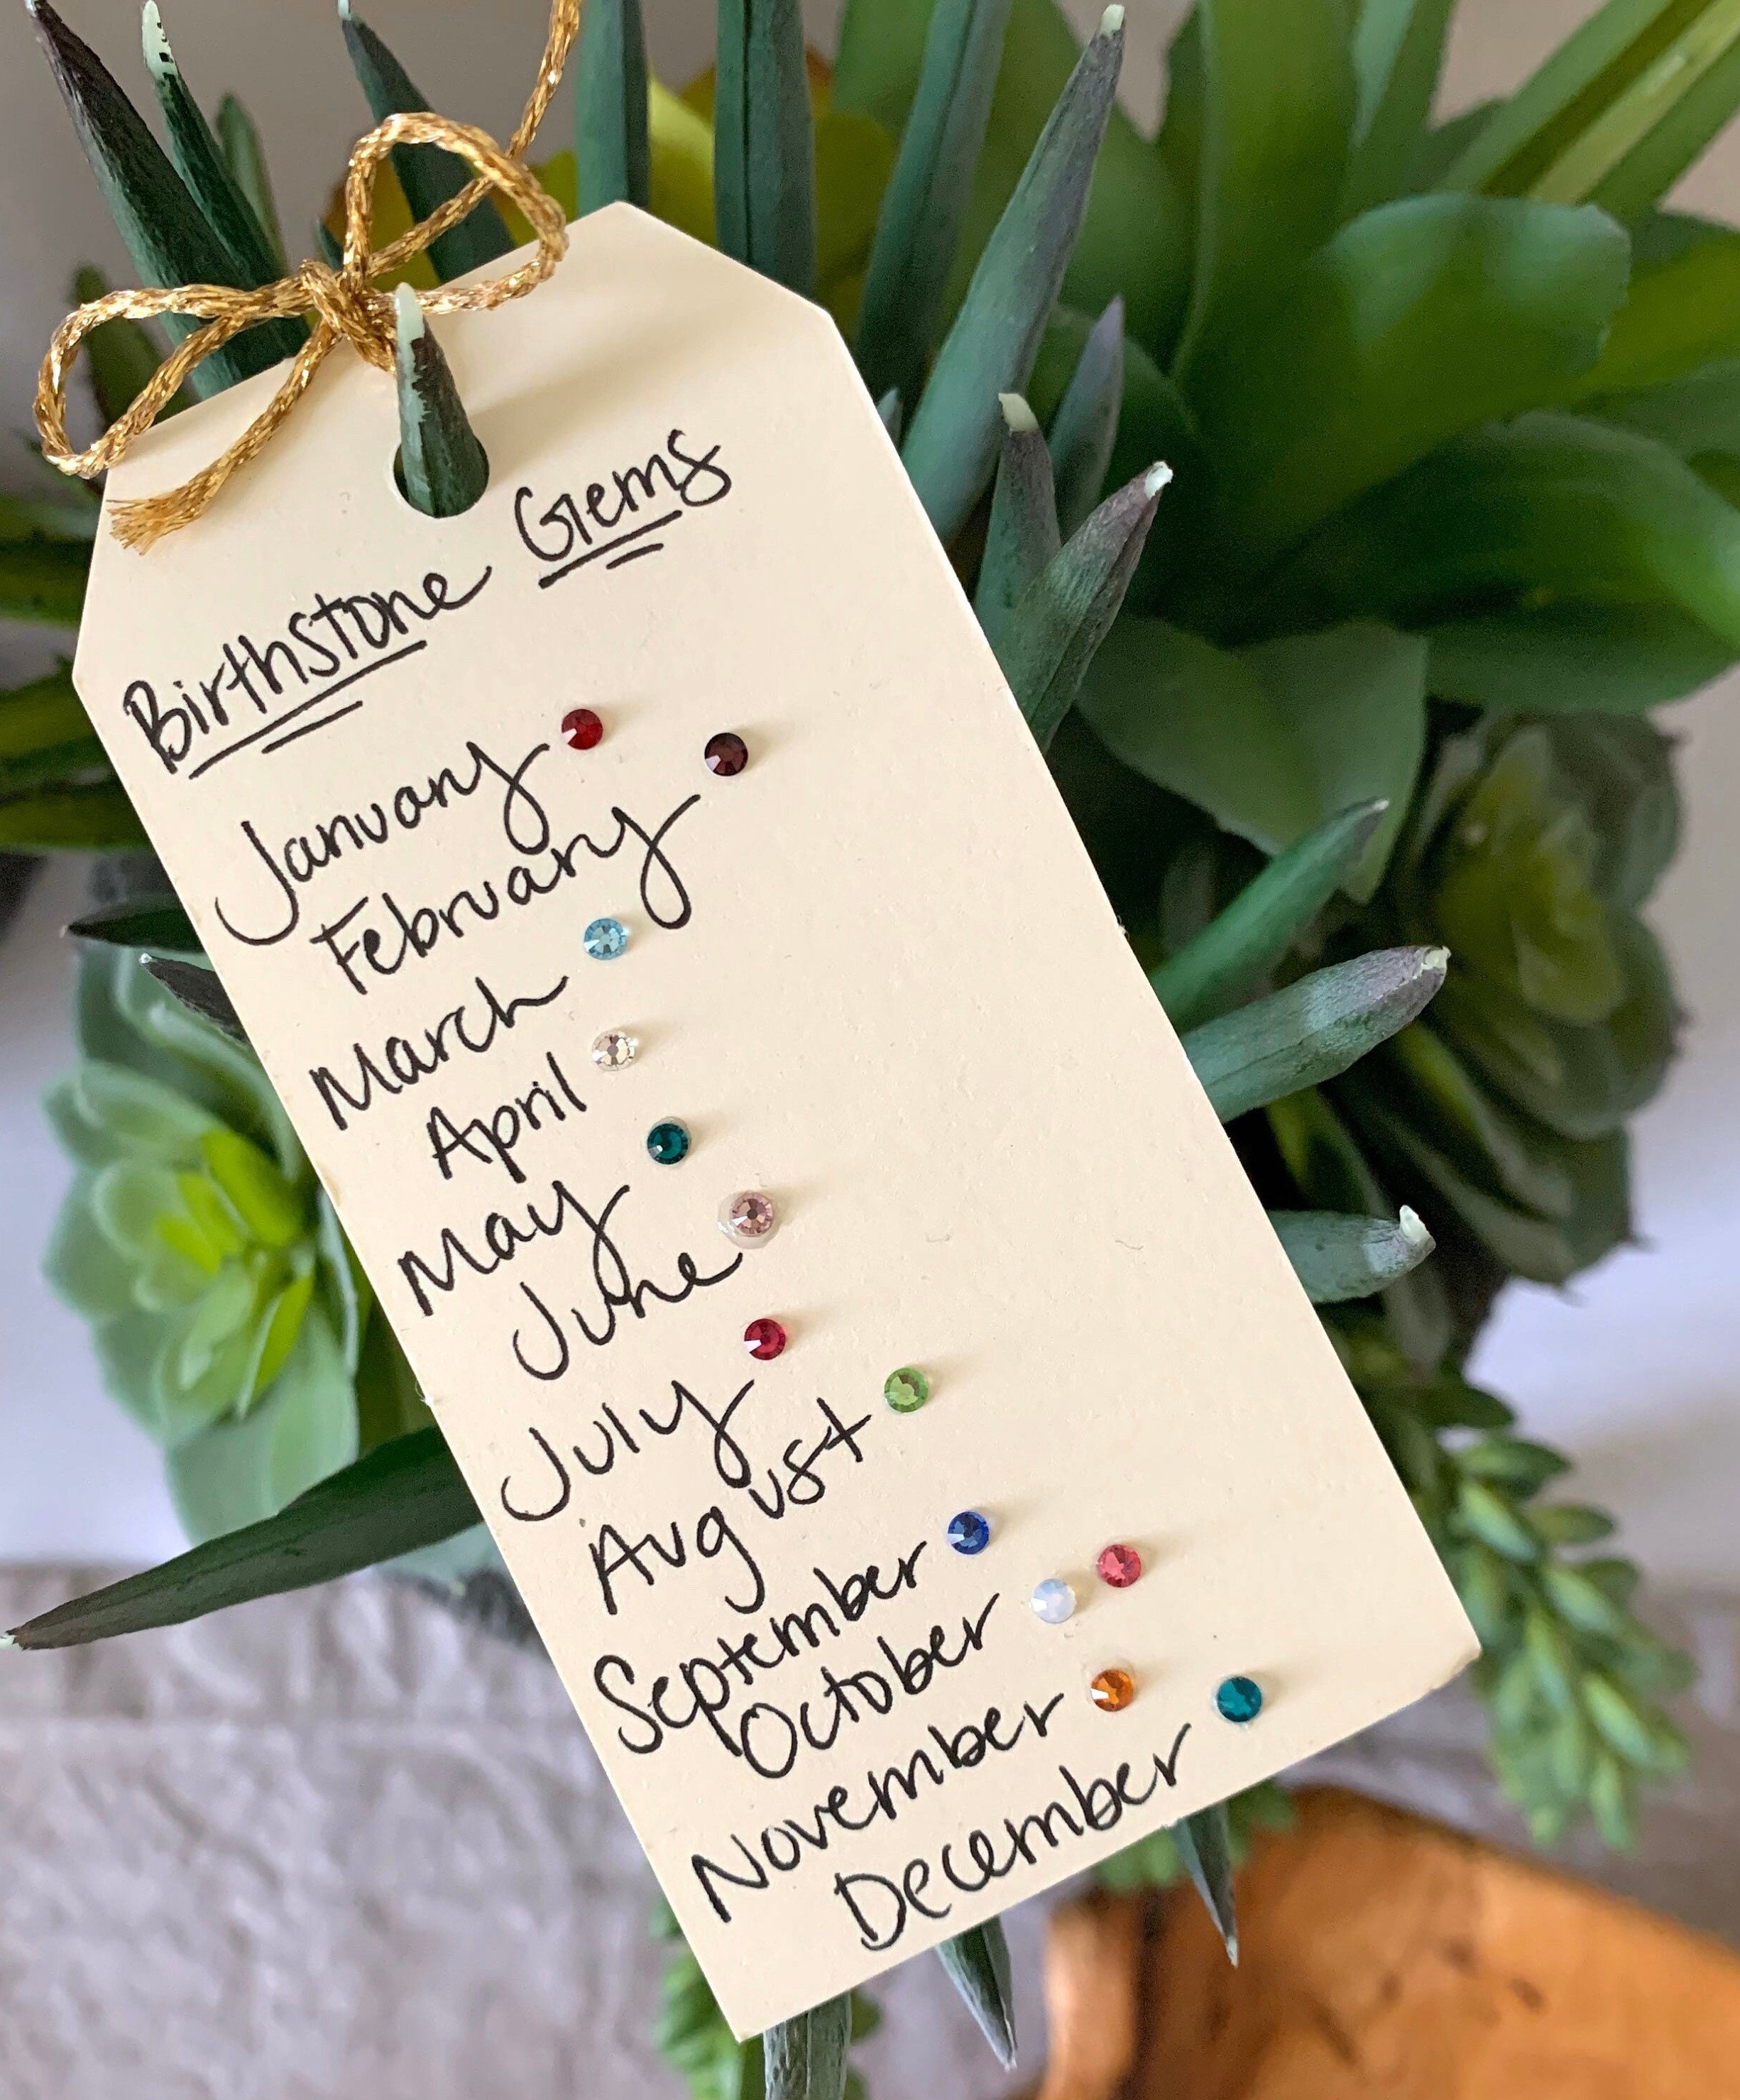 Birthstone Gems
January
February
March
April
May
June
July
August
September
October
November
December